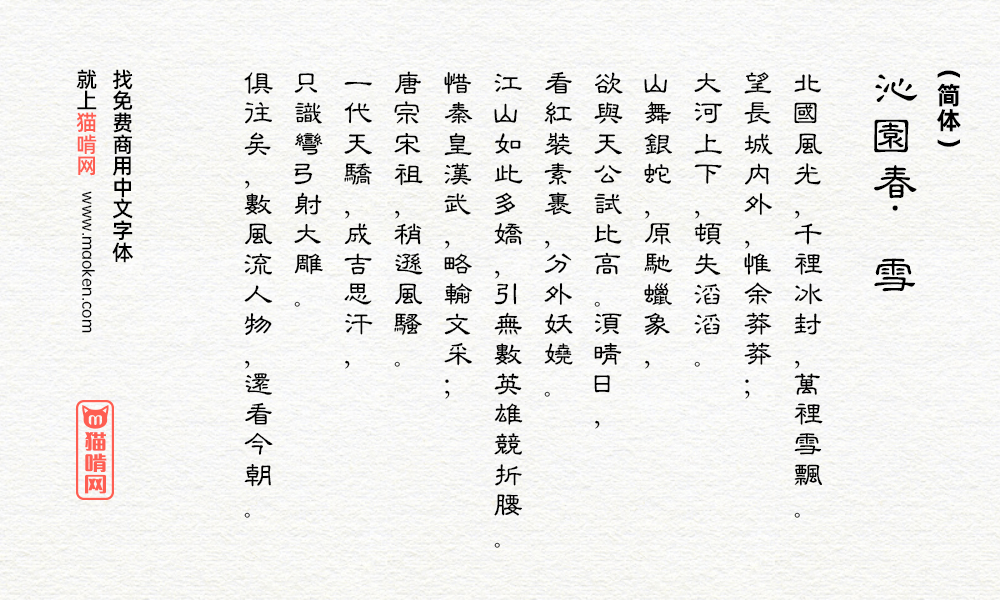 （简体）
沁園春·雪
北國風光,千裡冰封,萬裡雪飄。
望長城内外,惟余莽莽;
大河上下,頓失滔滔。
山舞銀蛇,原馳蠟象,
欲與天公試比高。須晴日,
看紅裝素裹,分外妖嬈。
江山如此多嬌,引無數英雄競折腰。
惜秦皇漢武,略輸文采;
唐宗宋祖,稍遜風騷。
一代天驕,成吉思汗,
只識彎弓射大雕。
俱往矣,數風流人物,還看今朝。
找免费商用中文字体
就上猫啃网 www.maoken.com
猫啃网